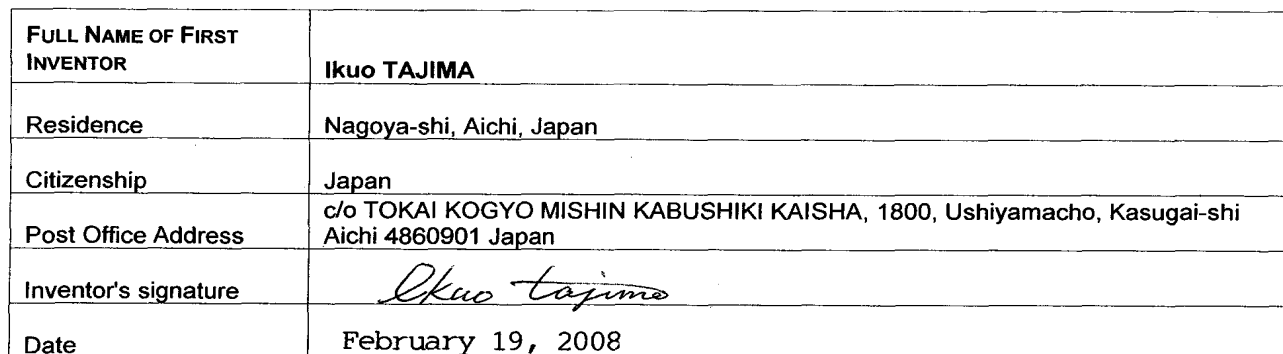 FULL NAME OF FIRST
INVENTOR
Ikuo TAJIMA
Residence
Nagoya-shi, Aichi, Japan
Citizenship
Japan
Post Office Address
c/o TOKAI KOGYO MISHIN KABUSHIKI KAISHA, 1800, Ushiyamacho, Kasugai-shi
Aichi 4860901 Japan
Inventor's signature
Ikuo tajima
Date
February 19, 2008